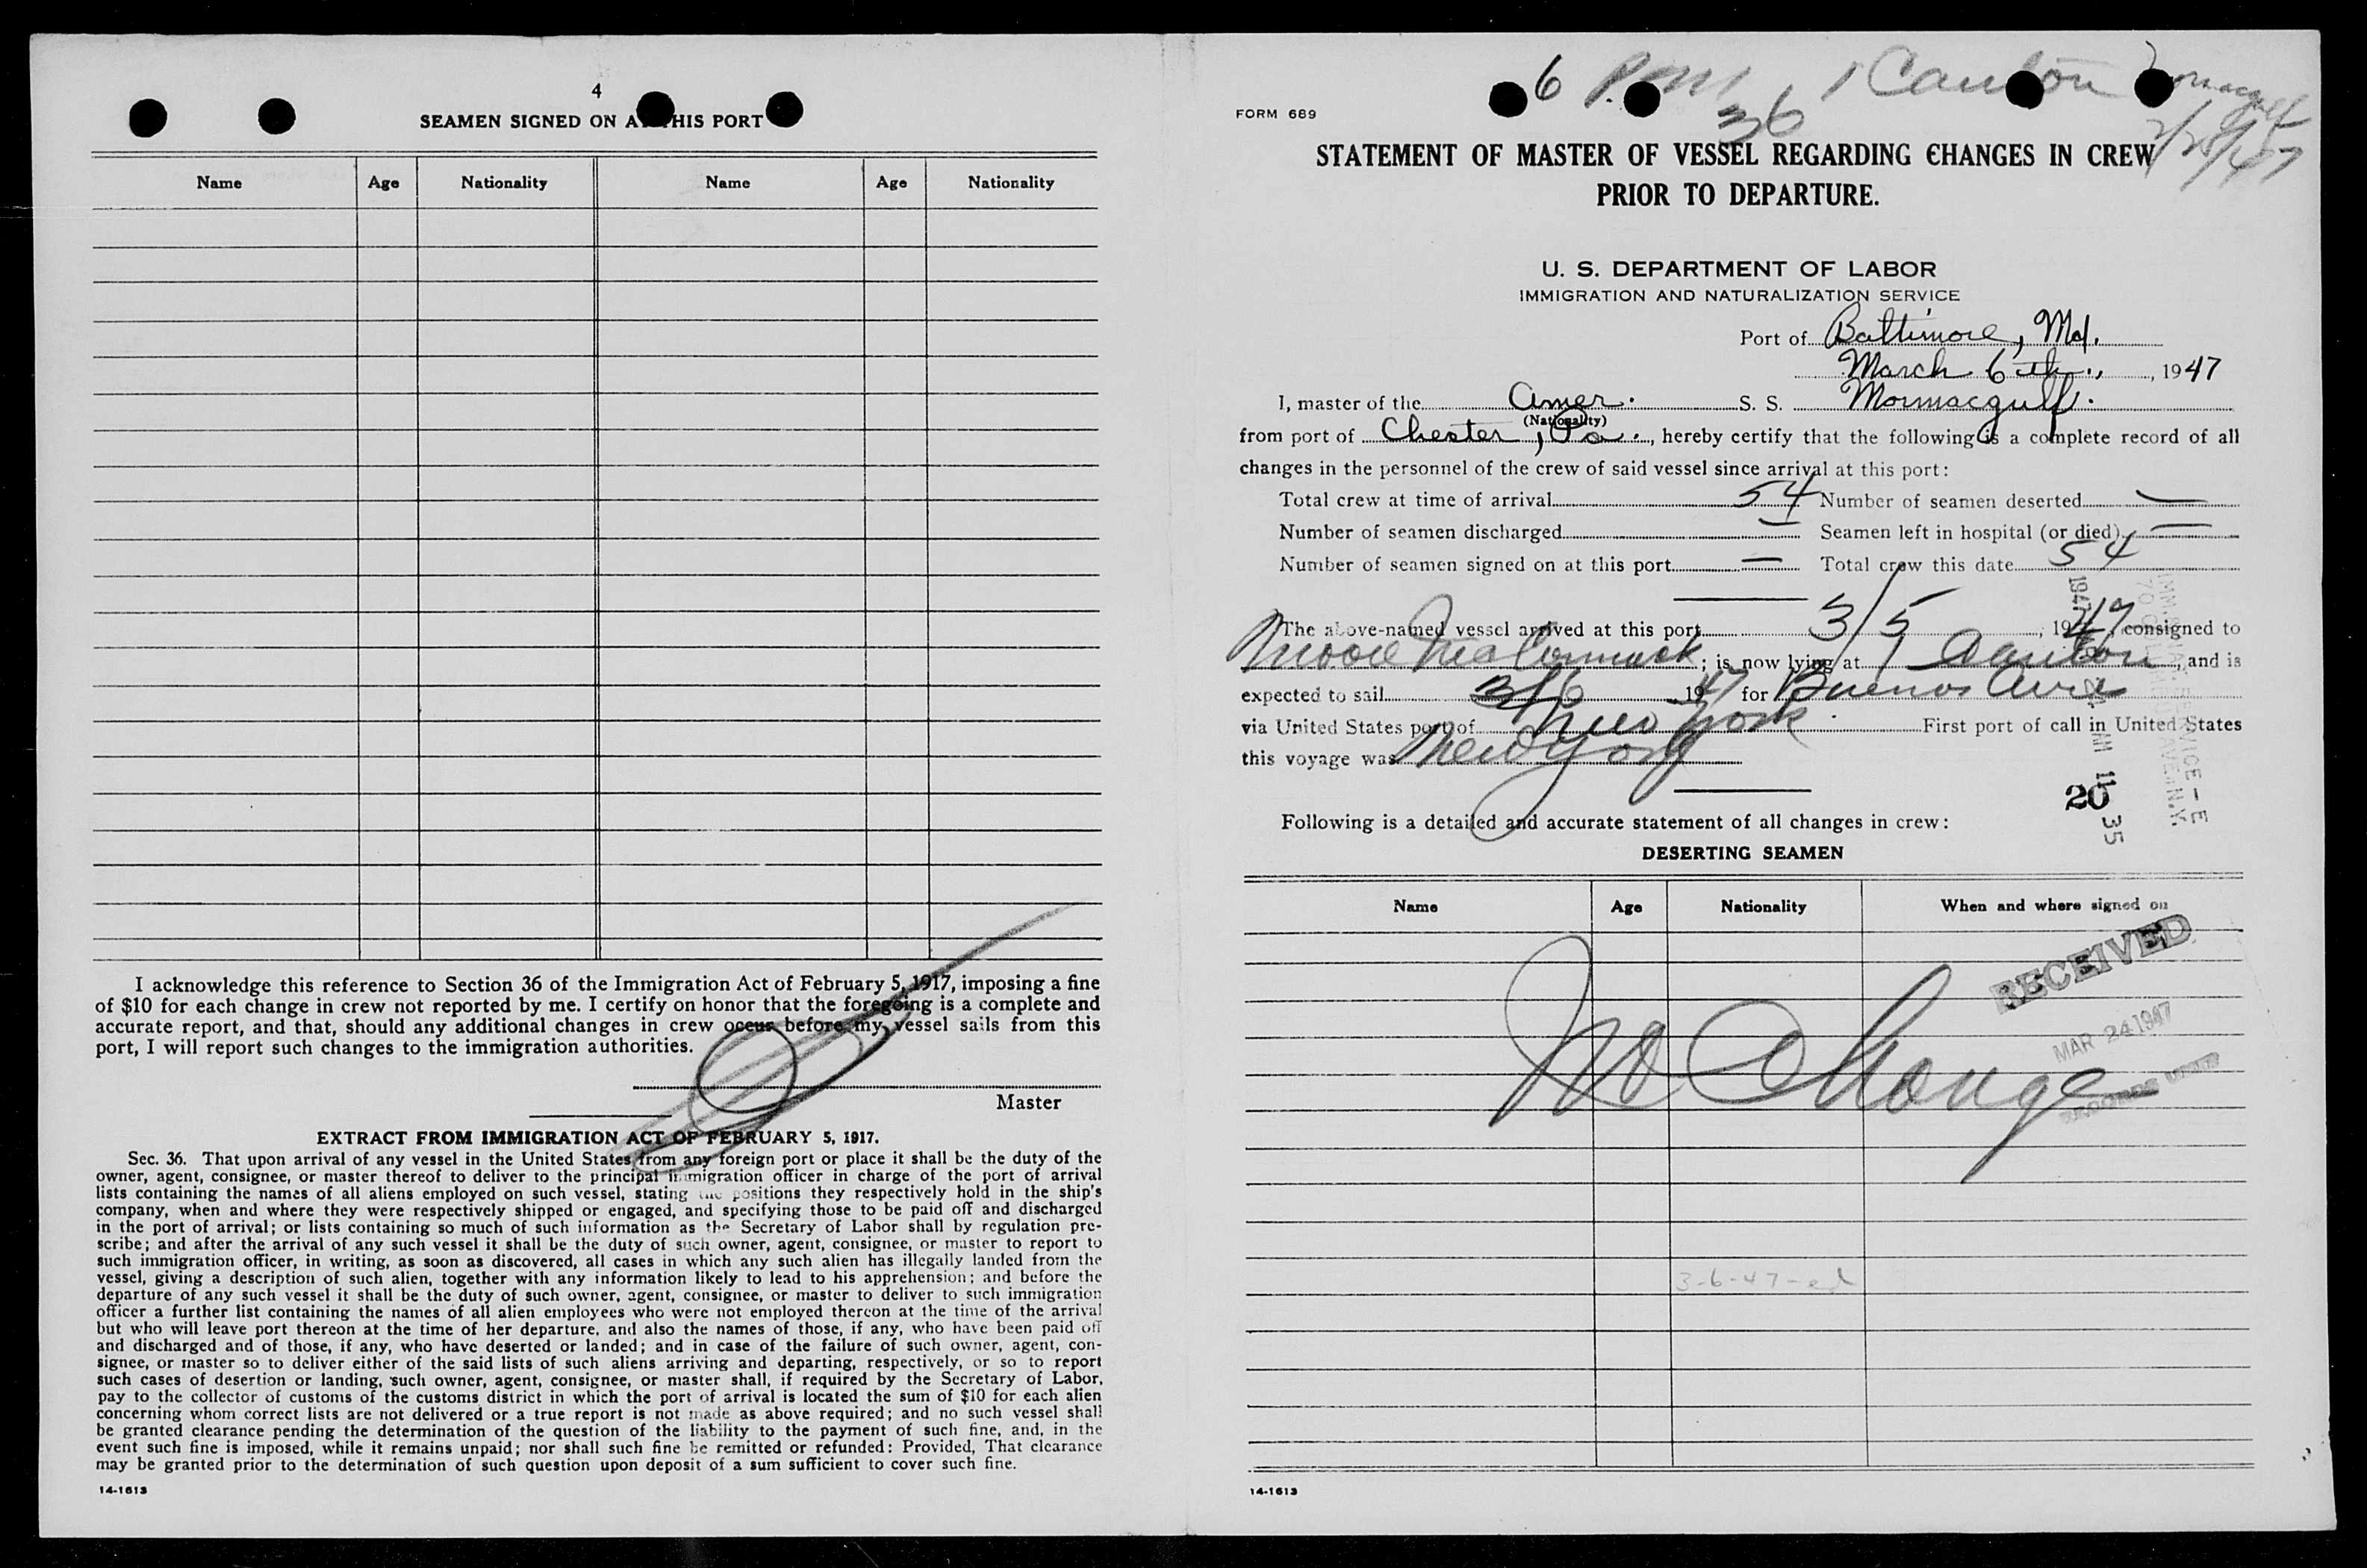 4
SEAMEN SIGNED ON A HIS PORT
Name Age Nationality Name Age Nationality
I acknowledge this reference to Section 36 of the Immigration Act of February 5, 1917, imposing a fine
of $10 for each change in crew not reported by me. I certify on honor that the foregoing is a complete and
accurate report, and that, should any additional changes in crew occur before my vessel sails from this
port, I will report such changes to the immigration authorities.
Master
EXTRACT FROM IMMIGRATION ACT OF FEBRUARY 5, 1917.
Sec. 36. That upon arrival of any vessel in the United States from any foreign port or place it shall be the duty of the
owner, agent, consignee, or master thereof to deliver to the principal immigration officer in charge of the port of arrival
lists containing the names of all aliens employed on such vessel, stating the positions they respectively hold in the ship's
company, when and where they were respectively shipped or engaged, and specifying those to be paid off and discharged
in the port of arrival; or lists containing so much of such information as the Secretary of Labor shall by regulation pre-
scribe; and after the arrival of any such vessel it shall be the duty of such owner, agent, consignee, or master to report to
such immigration officer, in writing, as soon as discovered, all cases in which any such alien has illegally landed from the
vessel, giving a description of such alien, together with any information likely to lead to his apprehension; and before the
departure of any such vessel it shall be the duty of such owner, agent, consignee, or master to deliver to such immigration
officer a further list containing the names of all alien employees who were not employed thereon at the time of the arrival
but who will leave port thereon at the time of her departure, and also the names of those, if any, who have been paid off
and discharged and of those, if any, who have deserted or landed; and in case of the failure of such owner, agent, con-
signee, or master so to deliver either of the said lists of such aliens arriving and departing, respectively, or so to report
such cases of desertion or landing, such owner, agent, consignee, or master shall, if required by the Secretary of Labor,
pay to the collector of customs of the customs district in which the port of arrival is located the sum of $10 for each alien
concerning whom correct lists are not delivered or a true report is not made as above required; and no such vessel shall
be granted clearance pending the determination of the question of the liability to the payment of such fine, and, in the
event such fine is imposed, while it remains unpaid; nor shall such fine be remitted or refunded: Provided, That clearance
may be granted prior to the determination of such question upon deposit of a sum sufficient to cover such fine.
14-1613
6 P.M. 1 Canton Mormacgulf
36
FORM 689
STATEMENT OF MASTER OF VESSEL REGARDING CHANGES IN CREW
PRIOR TO DEPARTURE.
U. S. DEPARTMENT OF LABOR
IMMIGRATION AND NATURALIZATION SERVICE
Port of Baltimore, Md.
March 6th., 1947
I, master of the Amer. S. S. Mormacgulf.
(Nationality)
from port of Chester, Pa., hereby certify that the following is a complete record of all
changes in the personnel of the crew of said vessel since arrival at this port:
Total crew at time of arrival 54 Number of seamen deserted —
Number of seamen discharged — Seamen left in hospital (or died) —
Number of seamen signed on at this port — Total crew this date 54
The above-named vessel arrived at this port 3/5, 1947, consigned to
Moore McCormack; is now lying at 1 Canton, and is
expected to sail 3/6 1947 for Buenos Aires
via United States port of New York. First port of call in United States
this voyage was New York
20
1947 MAR 21 AM 11 35
Following is a detailed and accurate statement of all changes in crew:
DESERTING SEAMEN
Name Age Nationality When and where signed on
RECEIVED
MAR 24 1947
No Change
3-6-47-ed
14-1613